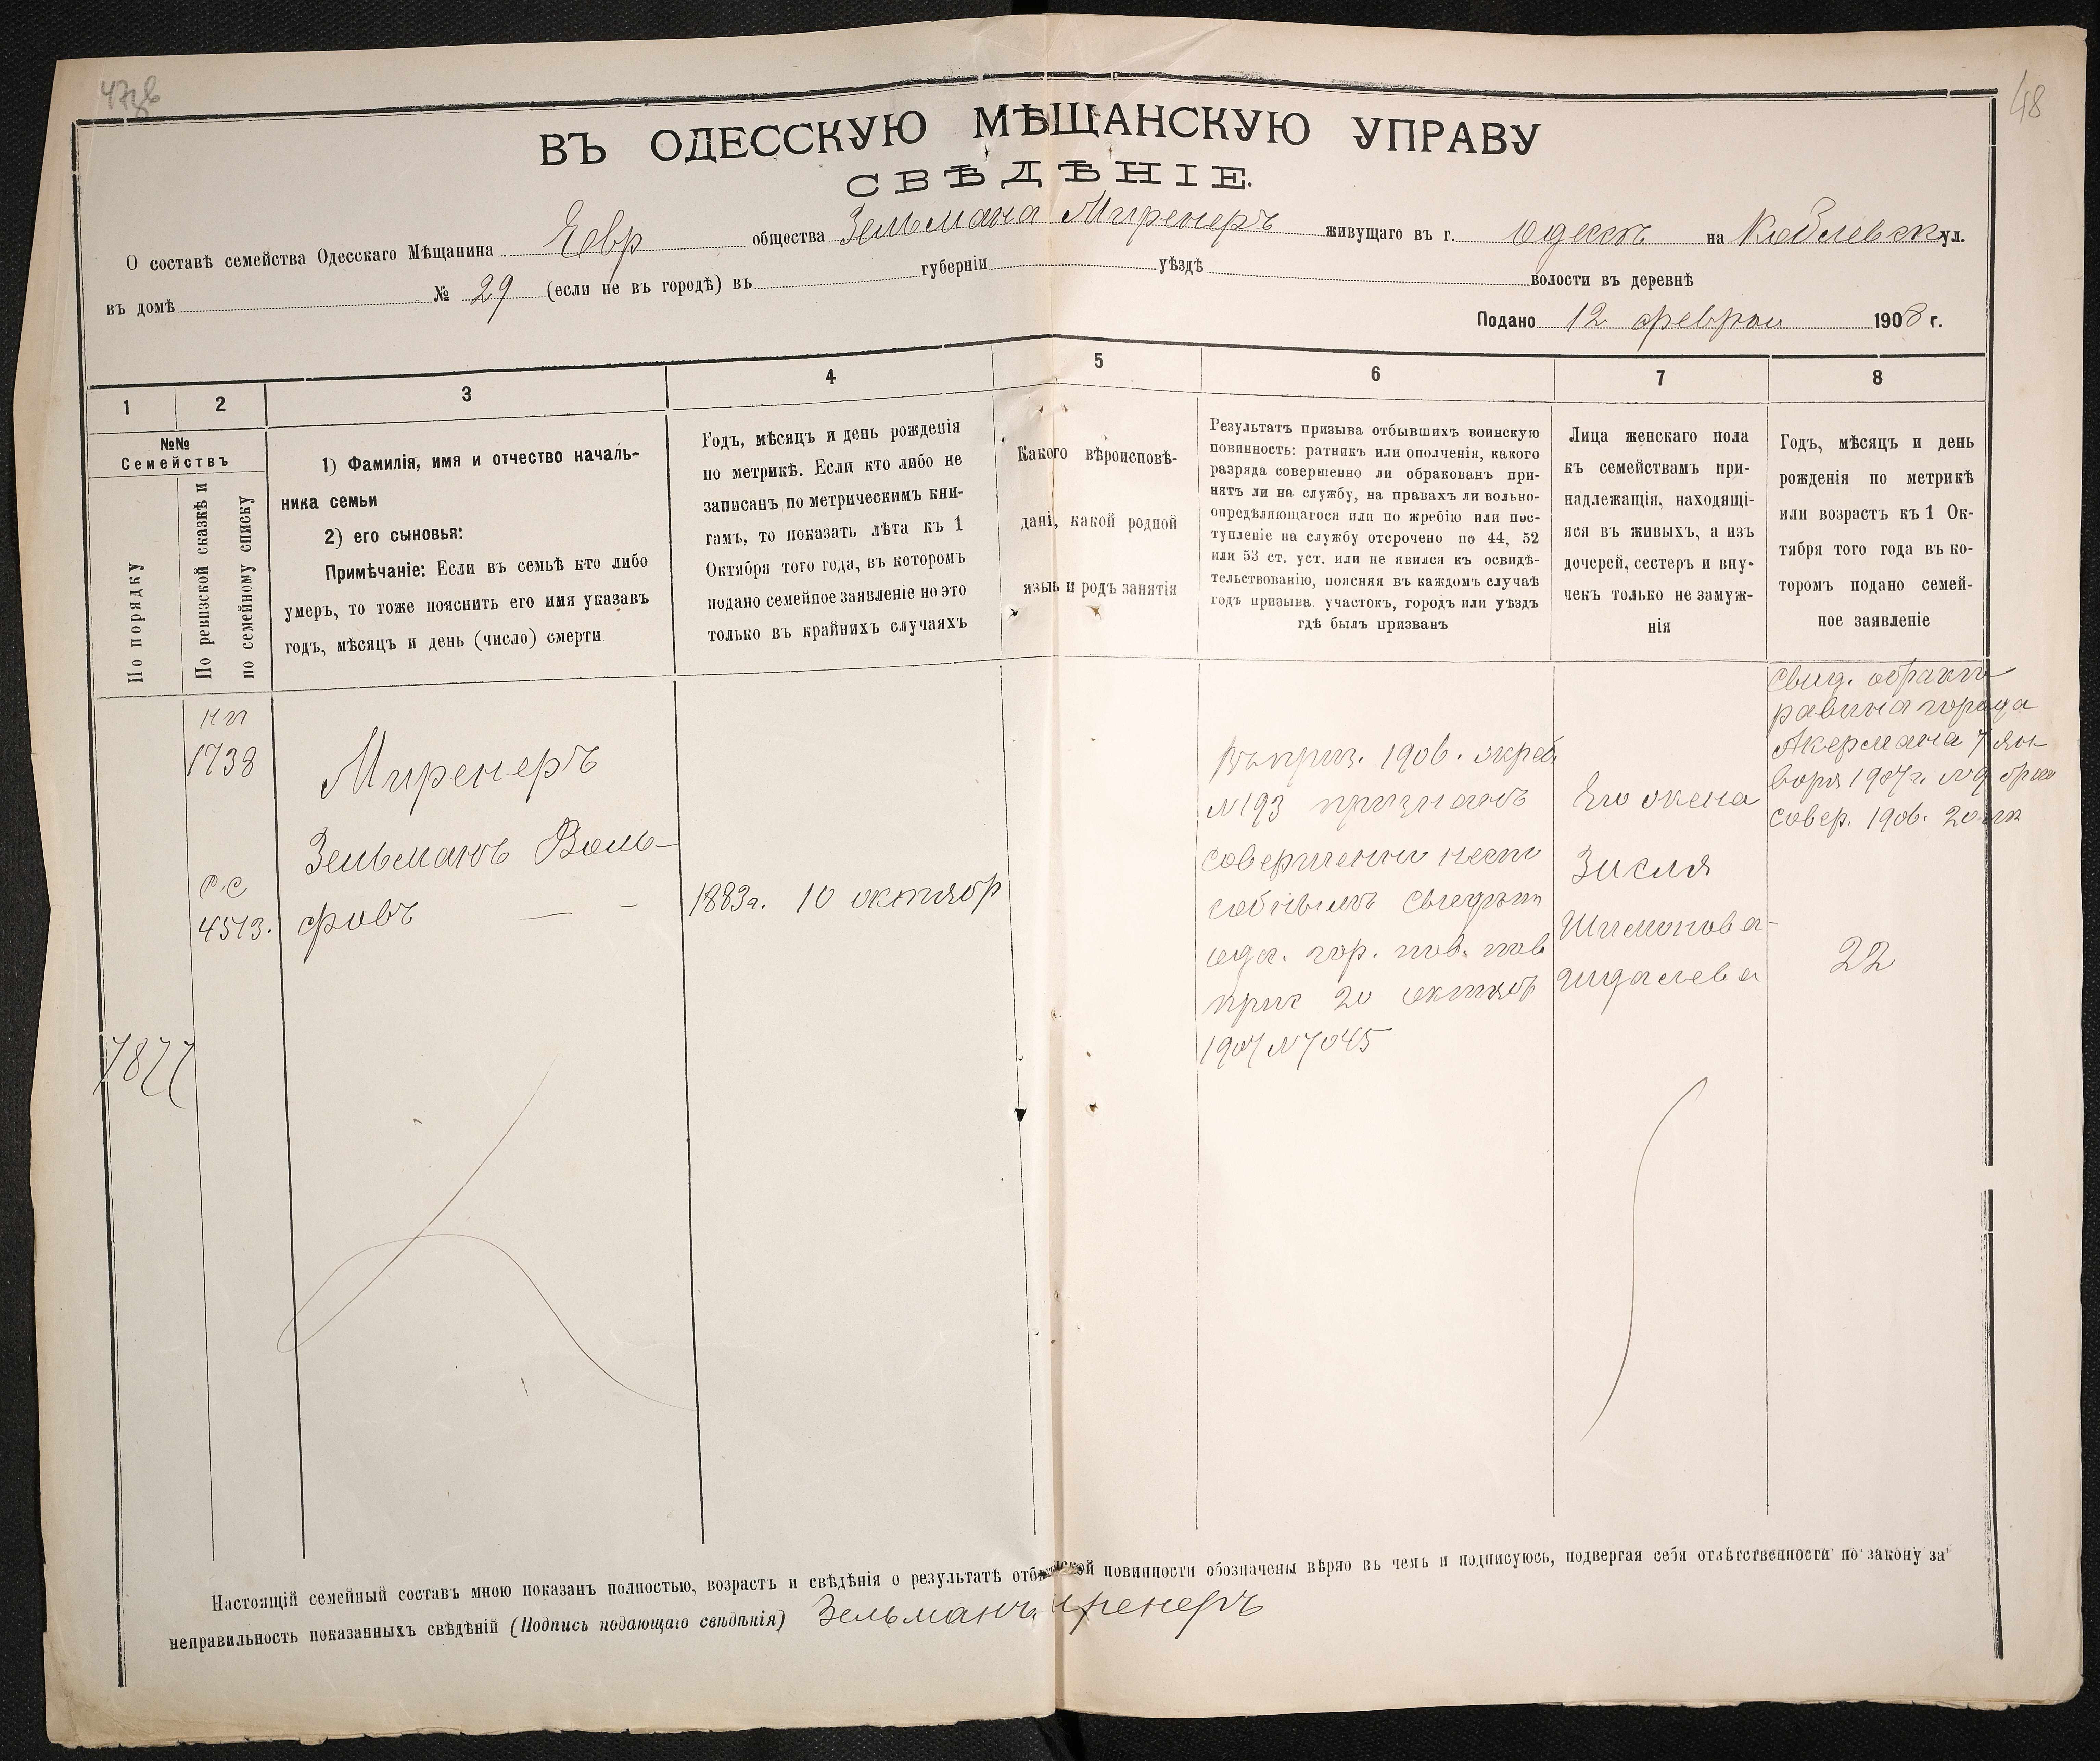 47об
48
ВЪ ОДЕССКУЮ МѢЩАНСКУЮ УПРАВУ
СВѢДѢНІЕ.
О составѣ семейства Одесскаго Мѣщанина Евр общества Зельмана Миренеръ живущаго въ г. Одессѣ на Коблевск ул.
въ домѣ № 29 (если не въ городѣ) въ губерніи уѣздѣ волости въ деревнѣ
Подано 12 феврал 1908 г.
1
2
3
4
5
6
7
8
№№
Семействъ
По порядку
По ревизской сказкѣ и
по семейному списку
1) Фамилія, имя и отчество началь-
ника семьи
2) его сыновья:
Примѣчаніе: Если въ семьѣ кто либо
умеръ, то тоже пояснить его имя указавъ
годъ, мѣсяцъ и день (число) смерти
Годъ, мѣсяцъ и день рожденія
по метрикѣ. Если кто либо не
записанъ по метрическимъ кни-
гамъ, то показать лѣта къ 1
Октября того года, въ которомъ
подано семейное заявленіе но это
только въ крайнихъ случаяхъ
Какого вѣроисповѣ-
данi, какой родной
языь и родъ занятія
Результатъ призыва отбывшихъ воинскую
повинность: ратникъ или ополченія, какого
разряда совершенно ли обракованъ при-
нятъ ли на службу, на правахъ ли вольно-
опредѣляющагося или по жребію или пос-
тупленіе на службу отсрочено по 44, 52
или 53 ст. уст. или не явился къ освидѣ-
тельствованію, поясняя въ каждомъ случаѣ
годъ призыва участокъ, городъ или уѣздъ
гдѣ былъ призванъ
Лица женскаго пола
къ семействамъ при-
надлежащія, находящі-
яся въ живыхъ, а изъ
дочерей, сестеръ и вну-
чекъ только не замуж-
нія
Годъ, мѣсяцъ и день
рожденія по метрикѣ
или возрастъ къ 1 Ок-
тября того года въ ко-
торомъ подано семей-
ное заявленіе
1738
Р.С
4513.
7877
Миренеръ
Зельманъ Воль-
фовъ
1883г. 10 октябр
Въ приз. 1906.
№ 193 признанъ
совершенно неспо
собнымъ свидѣт
одес. гор. по воин. пов
прис 20 октяб
1907 № 7045
Его жена
Зисля
Шимонова-
Гидалева
Свид. о бракѣ
равина города
Акермана 7 ян-
воря 1907г. № 9 брак
совер. 1906. 20
22
Настоящій семейный составъ мною показанъ полностью, возрастъ и свѣдѣнія о результатѣ повинности обозначены вѣрно въ чемъ и подписуюсь, подвергая себя отвѣтственности по закону за
неправильность показанныхъ свѣдѣній (Подпись подающаго свѣдѣнія) Зельманъ Миренеръ